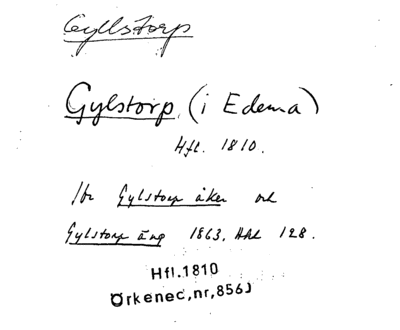 Gyllstorp
Gylstorp, (i Edema)
Hfl. 1810.
Jbr Gylstorp åker och
Gylstorp äng 1863, Akt 128.
Hfl.1810
Örkened,nr,856J